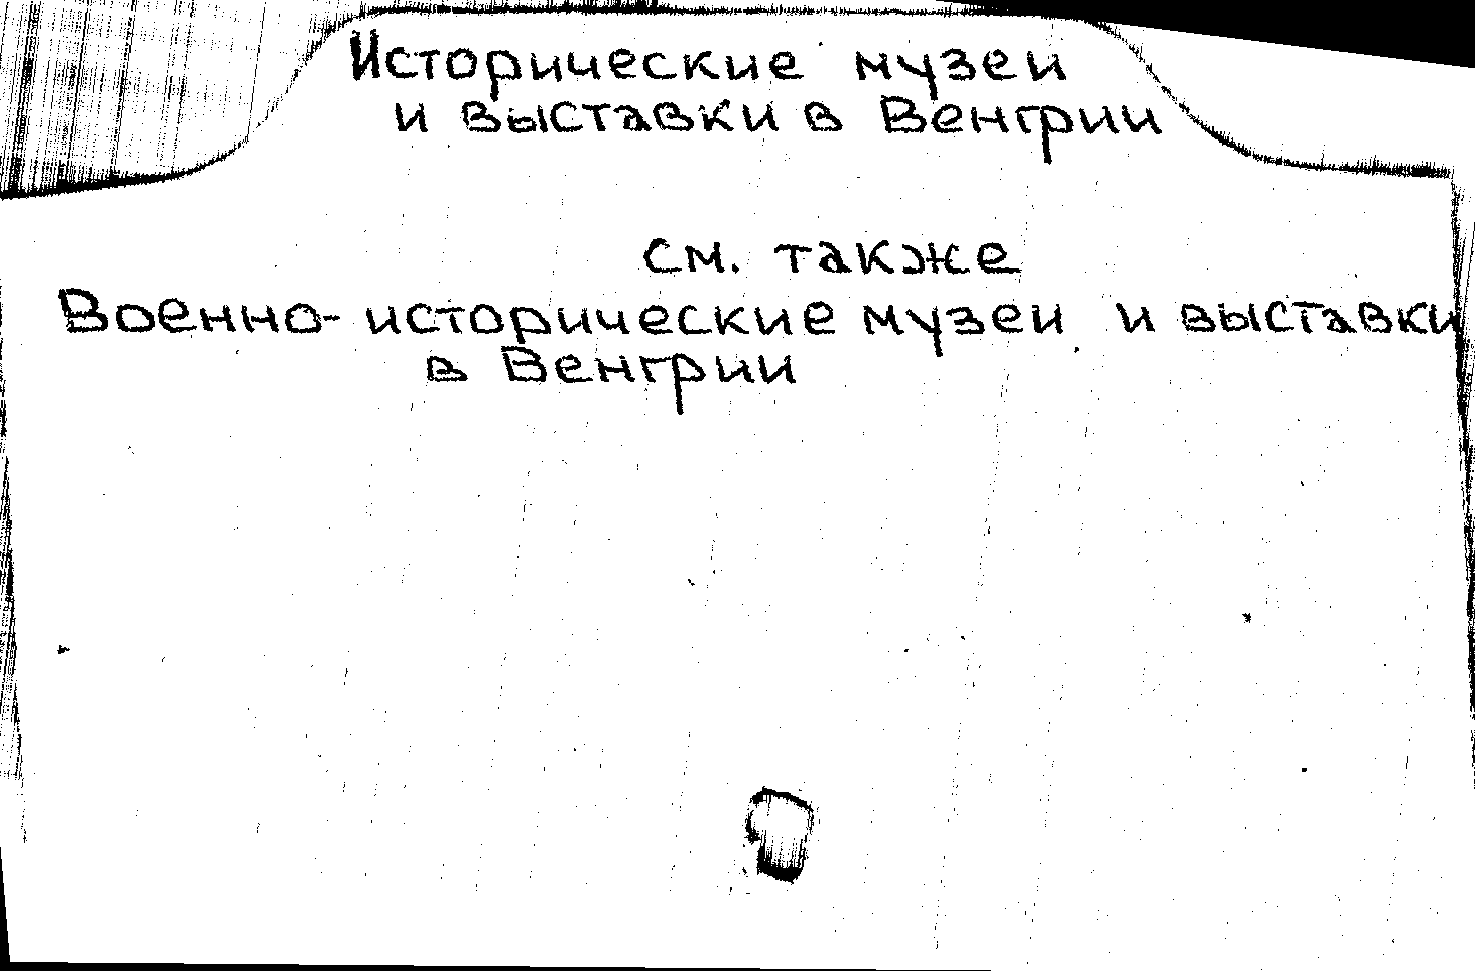 Исторические музеи
и выставки в Венгрии
см. также
Военно-исторические музеи и выставки
в Венгрии